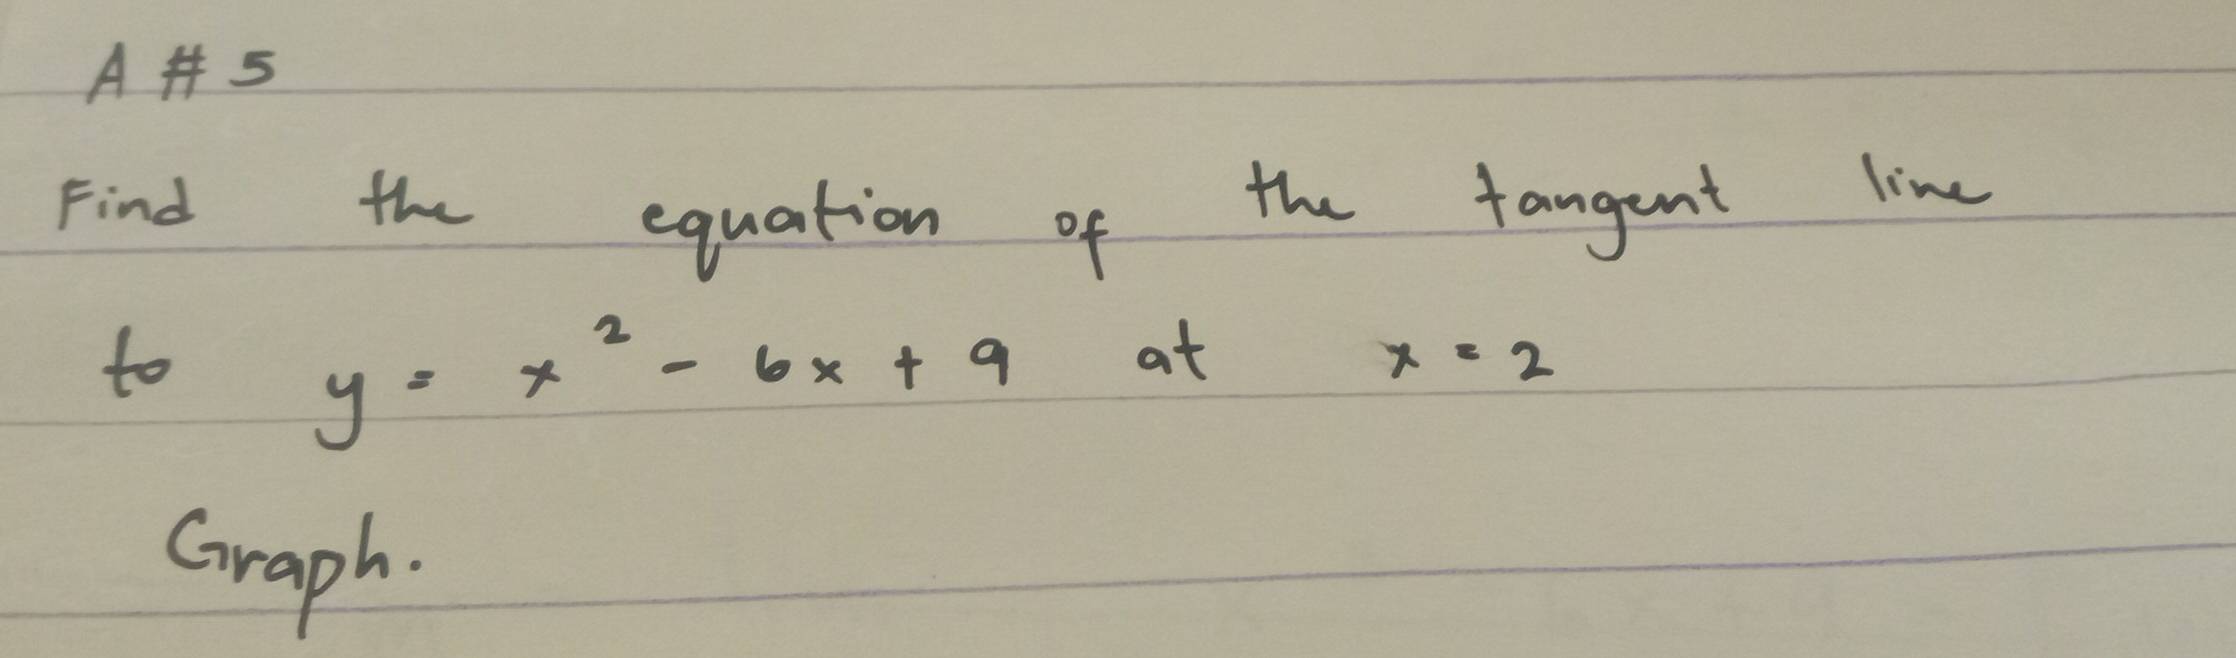 A # 5
Find the equation of the tangent line
to y = x² - 6x + 9 at x = 2
Graph.